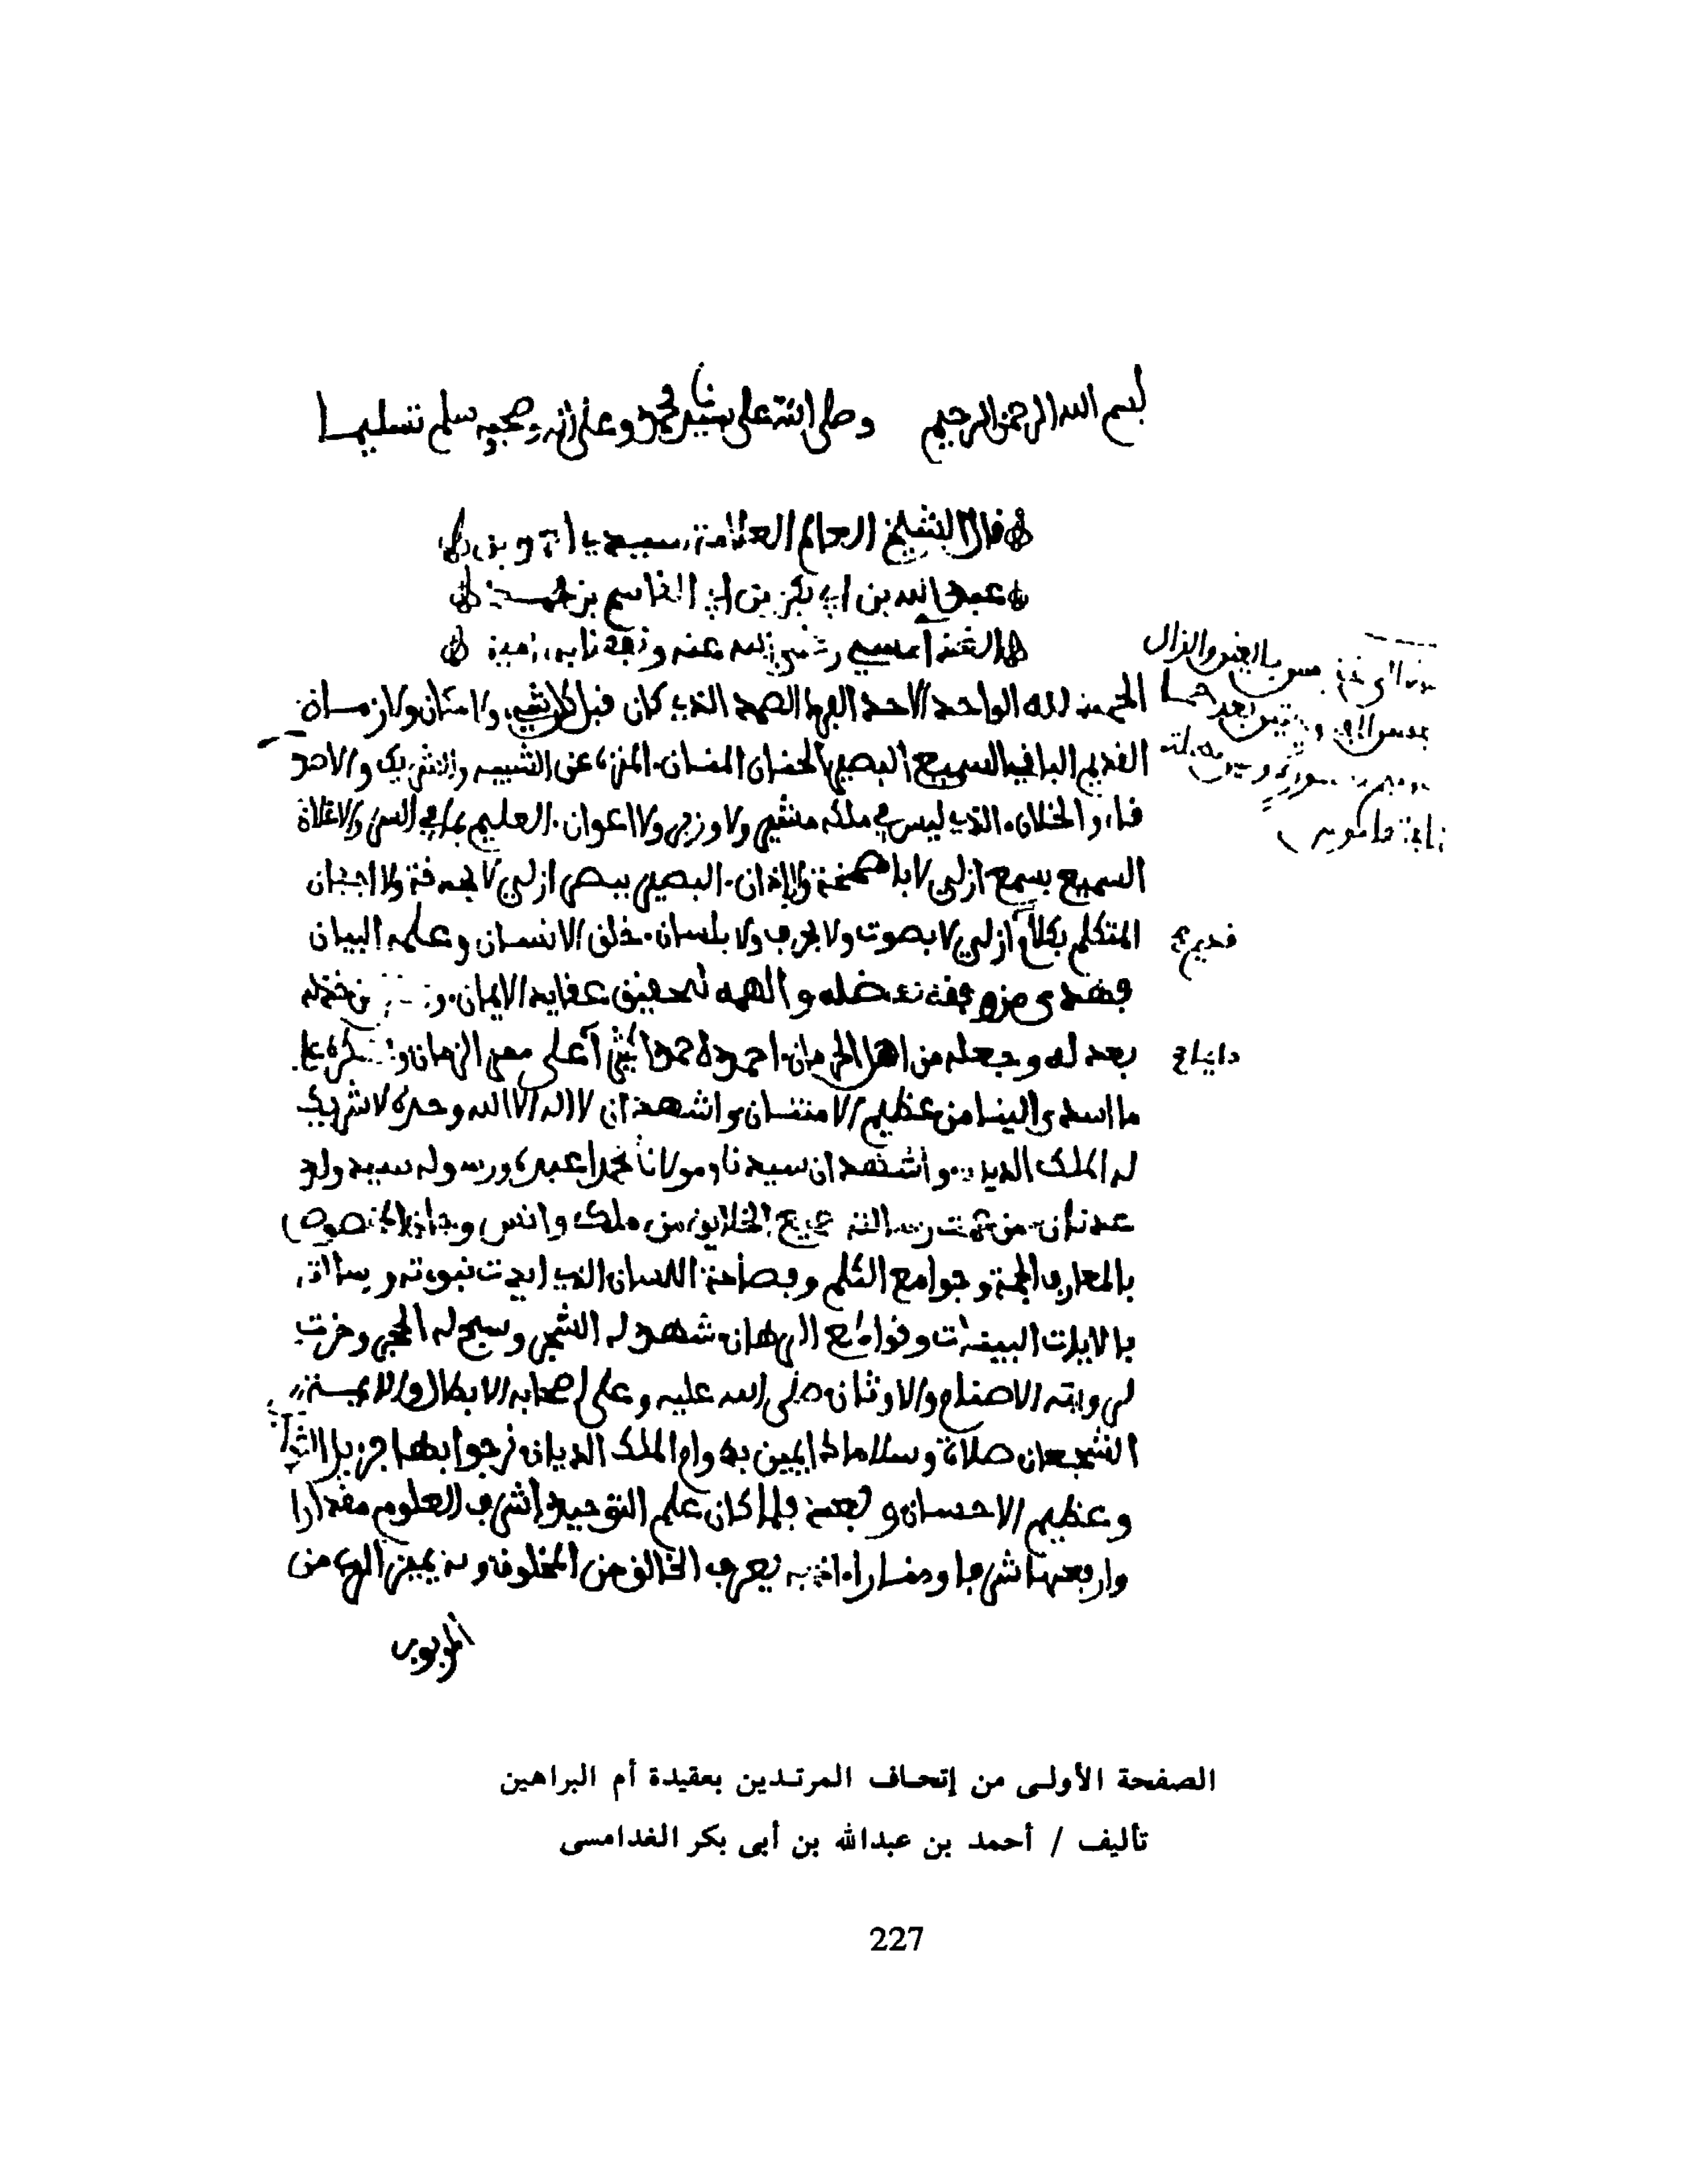 بسم الله الرحمن الرحيم وصلى الله على سيدنا محمد وعلى آله وصحبه وسلم تسليما
قال الشيخ العالم العلامة سيدي احمد بن
عبد الله بن ابي بكر بن ابي القاسم بن محمد
الغدامسي رضي الله عنه ونفعنا به امين
الحمد لله الواحد الاحد الفرد الصمد الذي كان قبل كل شيء ولا مكان ولا زمان
القديم الباقي السميع البصير الحنان المنان المنزه عن الشبيه والشريك والاصد
قاء والخلان الذي ليس في ملكه مشير ولا وزير ولا اعوان العليم بما في السر والاعلان
السميع بسمع ازلي لا باصمخة ولا اذان البصير ببصر ازلي لا بحدقة ولا اجفان
المتكلم بكلام ازلي لا بصوت ولا بحرف ولا بلسان خلق الانسان وعلمه البيان
فهدى من وفقه بفضله والهمه لتحقيق عقايد الايمان من خذله
بعدله وجعله من اهل الحرمان احمده حمدا على ممر الزمان
ما اسدى الينا من عظيم الامتنان واشهد ان لا اله الا الله وحده لا شريك
له الملك الديان واشهد ان سيدنا ومولانا محمدا عبده ورسوله سيد ولد
عدنان من عمت رسالته جميع الخلايق من ملك وانس وجان المخصوص
بالمعارف الجمة وجوامع الكلم وفصاحة اللسان الذي ايدت نبوته ورسالته
بالايات البينات وقواطع البرهان شهد له الشجر وسبح له الحجر وخرت
لرويته الاصنام والاوثان صلى الله عليه وعلى اصحابه الابطال
الشجعان صلاة وسلاما دايمين بدوام الملك الديان نرجوا بها جزيل
وعظيم الاحسان وبعد فلما كان علم التوحيد اشرف العلوم مقدارا
وارفعها شرفا ومنارا اذ به يعرف الخالق من المخلوق وبه يميز الرب من
المربوب
قديم
الصفحة الأولى من إتحاف المرتدين بعقيدة أم البراهين
تأليف / أحمد بن عبدالله بن أبى بكر الغدامسى
227